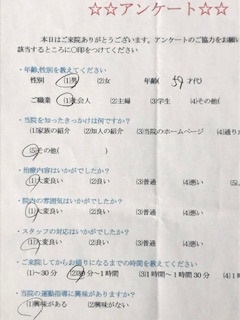 ☆☆アンケート☆☆
本日はご来院ありがとうございます。アンケートのご協力をお願い
該当するところに○印をつけてください
・年齢,性別を教えてください
性別 (1)男 (2)女 年齢( 才代)
ご職業 (1)社会人 (2)主婦 (3)学生 (4)その他(
・当院を知ったきっかけは何ですか?
(1)家族の紹介 (2)知人の紹介 (3)当院のホームページ (4)通り
(5)その他( )
・治療内容はいかがでしたか?
(1)大変良い (2)良い (3)普通 (4)悪い
・院内の雰囲気はいかがでしたか?
(1)大変良い (2)良い (3)普通 (4)悪い
・スタッフの対応はいかがでしたか?
(1)大変良い (2)良い (3)普通 (4)悪い
・ご来院してからお帰りになるまでの時間を教えてください
(1)～30分 (2)30分～1時間 (3)1時間～1時間30分 (4)1
・当院の運動指導に興味がありますか?
(1)興味がある (2)興味がない